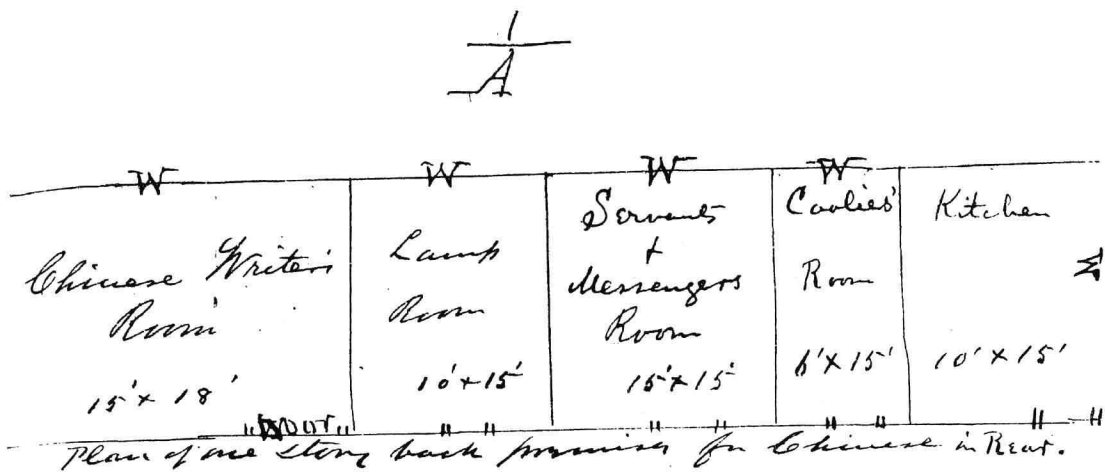 A
W
W
W
W
Chinese Writer's
Room
15' x 18'
Door
Lamp
Room
10' x 15'
Servants
+
Messengers
Room
15' x 15'
Coolies'
Room
6' x 15'
Kitchen
W
10' x 15'
Plan of one story back premises for Chinese in Rear.